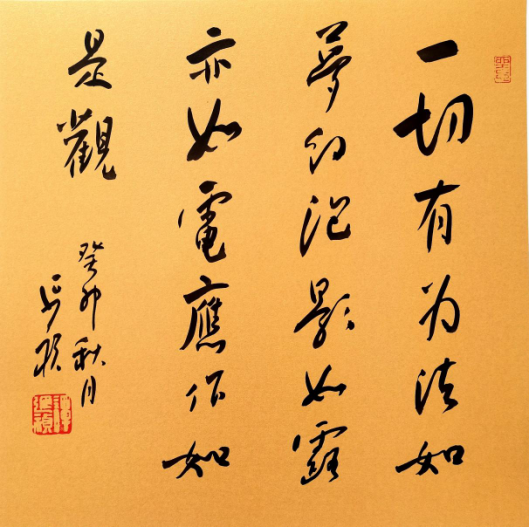 一切有为法如
夢幻泡影如露
亦如電應作如
是觀
癸卯秋月